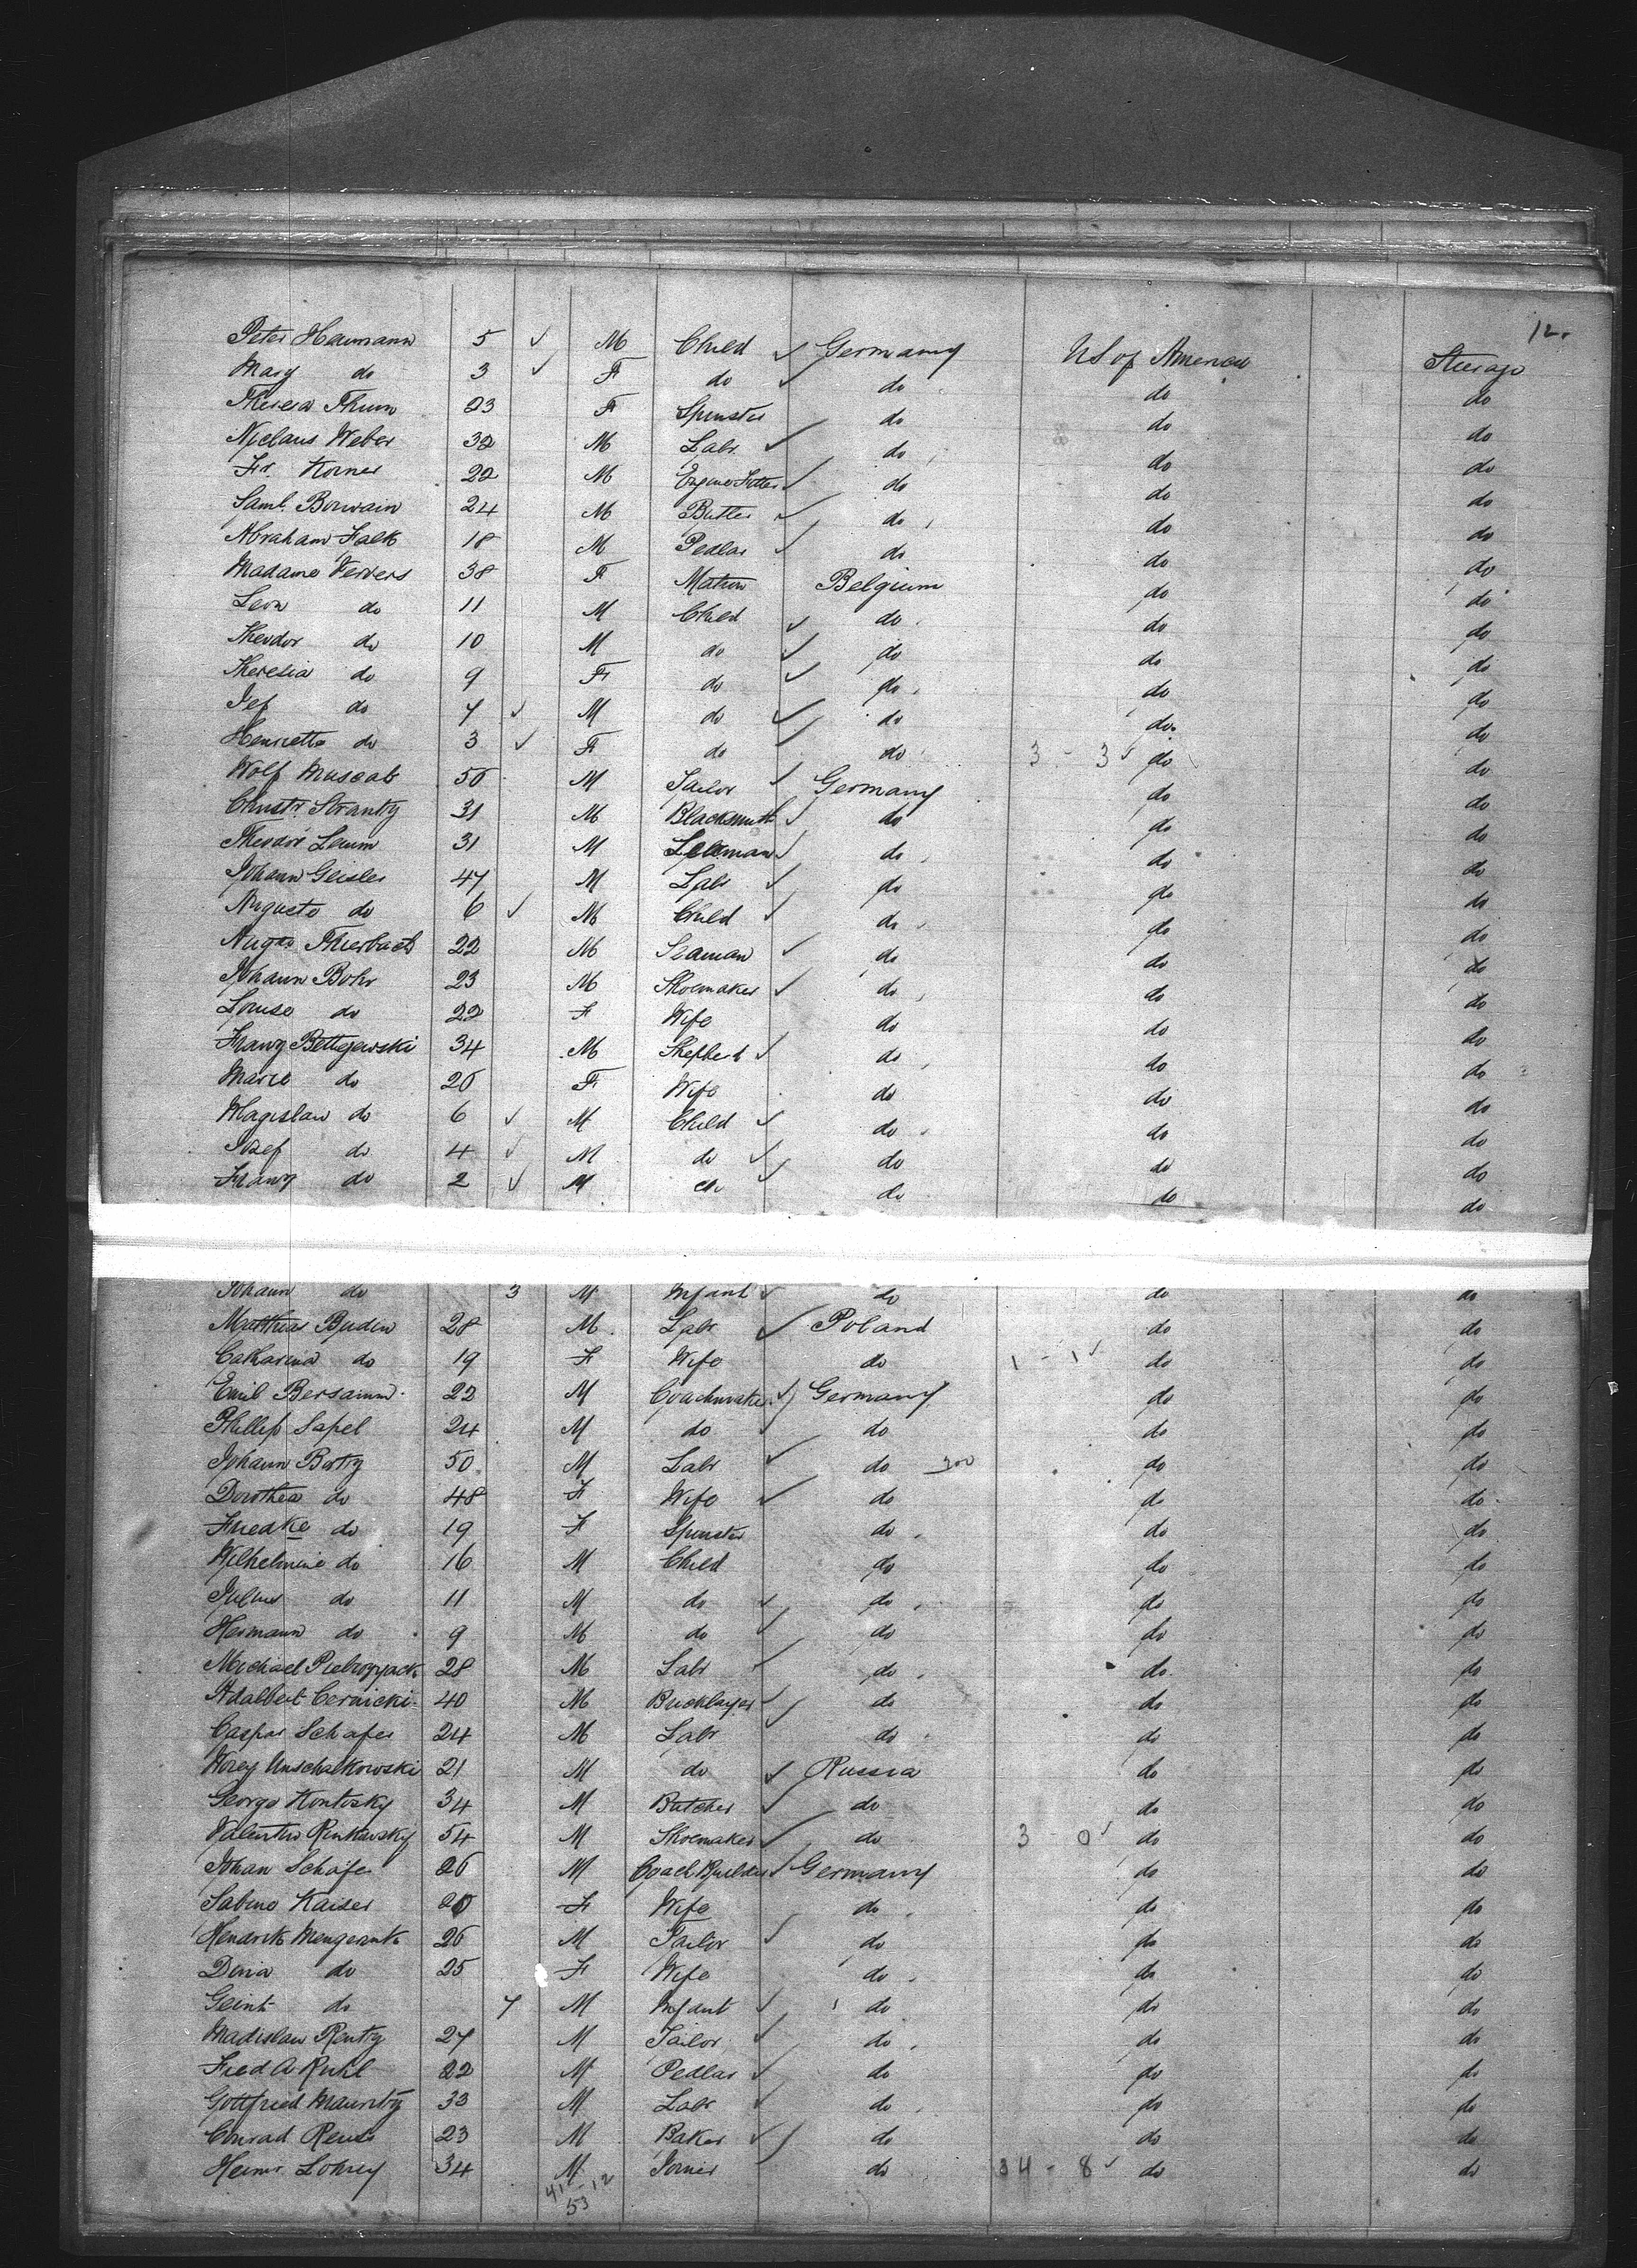 12.
Peter Haumann 5 ✓ M Child ✓ Germany US of America Steerage
Mary do 3 ✓ F do ✓ do do do
Theresa Thum 23 F Spinster do do do
Niclaus Weber 32 M Labr ✓ do do do
Fr. Korner 22 M Engine Fitter ✓ do do do
Saml. Borwain 24 M Butler ✓ do do do
Abraham Falk 18 M Pedlar ✓ do do do
Madame Ververs 38 F Matron Belgium do do
Leon do 11 M Child ✓ do do do
Theodor do 10 M do ✓ do do do
Theresia do 9 F do ✓ do do do
Jef do 7 ✓ M do ✓ do do do
Henrietta do 3 ✓ F do ✓ do 3 - 3 ✓ do do
Wolf Muscat 56 M Tailor ✓ Germany do do
Christn Strantz 31 M Blacksmith ✓ do do do
Theodor Laum 31 M do do do
Johann Geisler 47 M Labr ✓ do do do
Auguste do 6 ✓ M Child ✓ do do do
Augto Thierbach 22 M Seaman ✓ do do do
Johann Bohr 23 M Shoemaker ✓ do do do
Louise do 22 F Wife do do do
Franz Bettejewski 34 M Shepherd ✓ do do do
Marie do 26 F Wife do do do
Wagislaw do 6 ✓ M Child ✓ do do do
Josef do 4 ✓ M do ✓ do do do
Franz do 2 ✓ M do ✓ do do do
Johann do 3 M Infant ✓ do do do
Matthias Buden 28 M Labr ✓ Poland do do
Catharina do 19 F Wife do 1 - 1 ✓ do do
Emil Bersainm 22 M Coachmaker ✓ Germany do do
Phillip Sapel 24 M do ✓ do do do
Johann Bartz 50 M Labr ✓ do do do
Dorothea do 48 F Wife ✓ do do do
Friedke do 19 F Spinster do do do
Wilhelmine do 16 M Child do do do
Julius do 11 M do ✓ do do do
Hermann do 9 M do ✓ do do do
Michael 28 M Labr ✓ do do do
Adalbert Cernicki 40 M Bricklayer ✓ do do do
Caspar Schafer 24 M Labr ✓ do do do
Unschalkowski 21 M do ✓ Russia do do
George Kontosky 34 M Butcher ✓ do do do
Valentin Rinkowsky 54 M Shoemaker ✓ do 3 - 0 ✓ do do
Johan Schäfer 26 M Coach Builder ✓ Germany do do
Sabino Kaiser 20 F Wife do do do
Hendrik Mengerink 26 M Tailor ✓ do do do
Dina do 25 F Wife do do do
Geint do 7 M Infant ✓ do do do
Madislaw Rentz 27 M Tailor ✓ do do do
Fred A Ruhl 22 M Pedlar ✓ do do do
Gottfried Mauritz 33 M Labr ✓ do do do
Conrad Reuss 23 M Baker ✓ do do do
Heinr. Lohrey 34 M Joiner do 34 - 8 ✓ do do
41 - 12
53